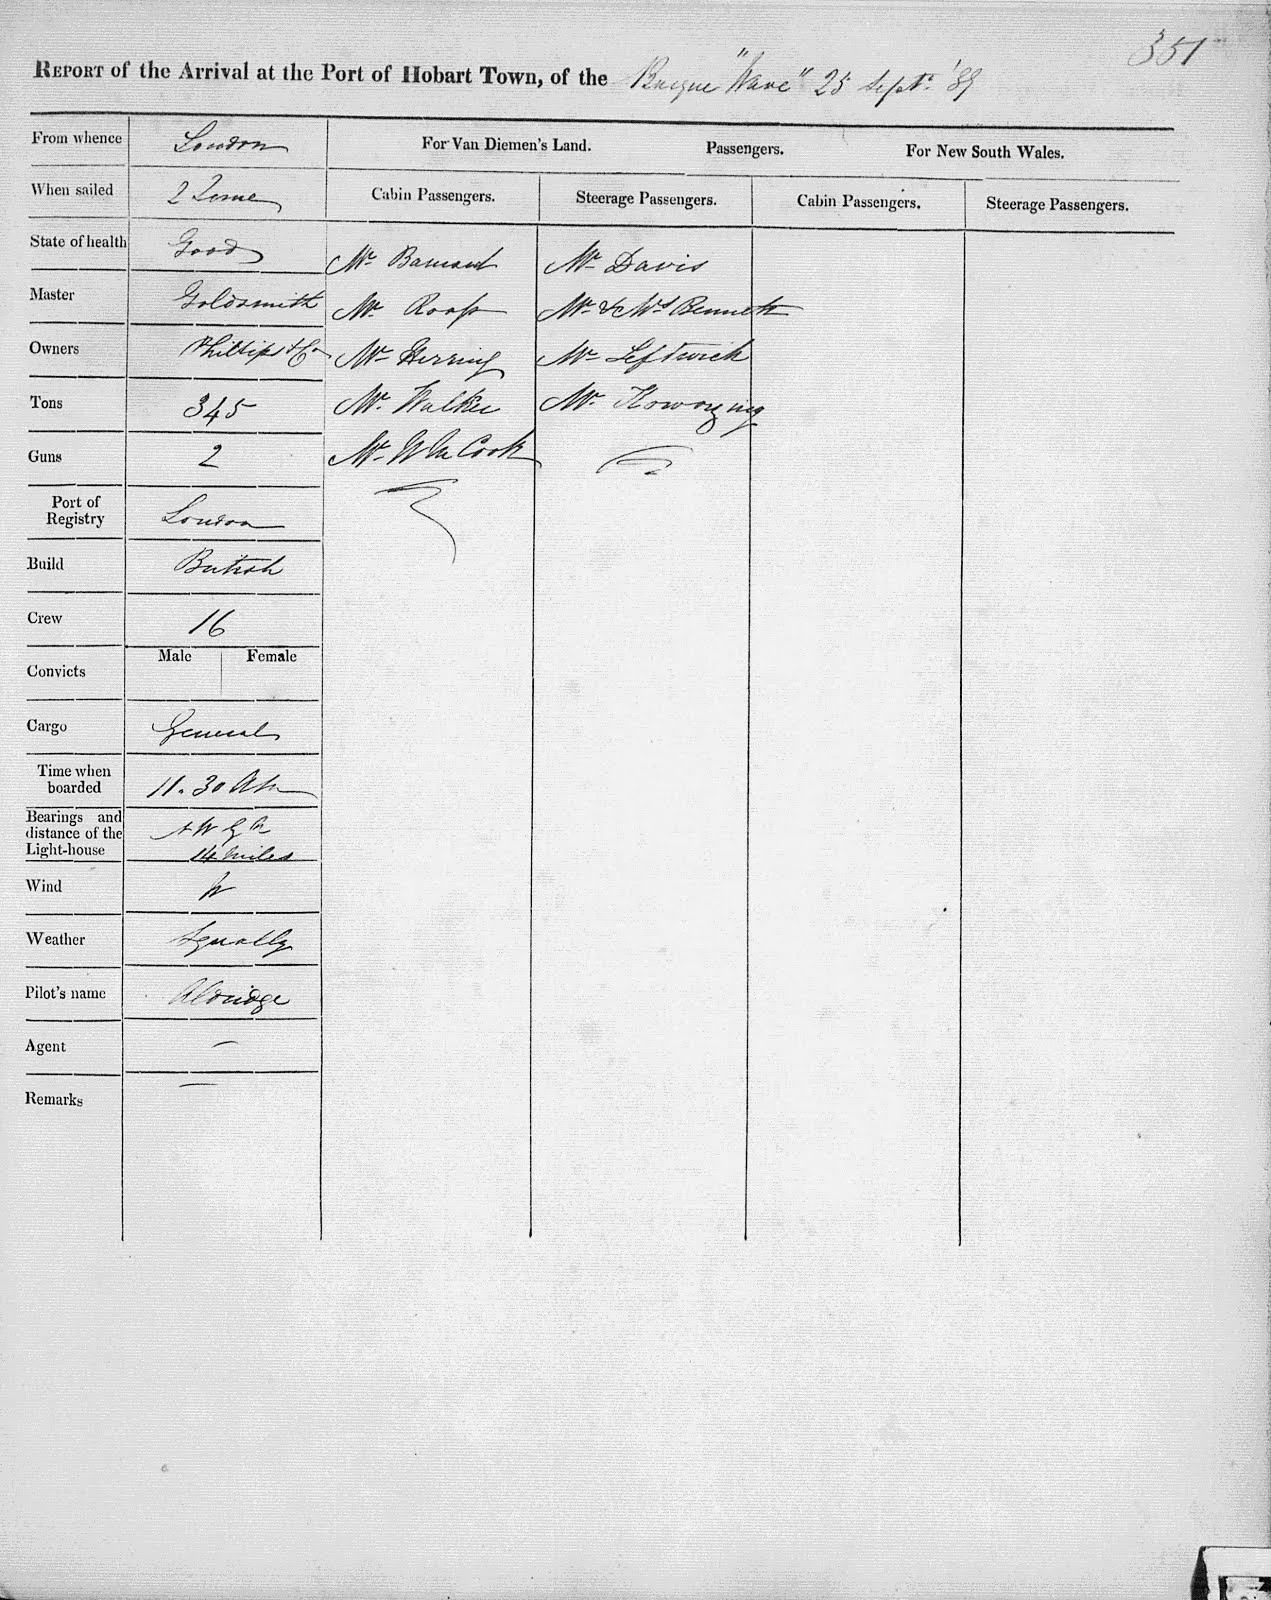 351
REPORT of the Arrival at the Port of Hobart Town, of the Barque "Wave" 25 Septr. '39
From whence London
For Van Diemen's Land. Passengers. For New South Wales.
When sailed 2 June
Cabin Passengers. Steerage Passengers. Cabin Passengers. Steerage Passengers.
State of health Good
Mr Mr Davis
Master Goldsmith
Mr Mr & Mrs Bennett
Owners Phillips & Co
Mr Herring Mr Leftwich
Tons 345
Mr Walker Mr
Guns 2
Mr Wm Cook
Port of
Registry London
Build British
Crew 16
Male Female
Convicts
Cargo General
Time when
boarded 11.30 AM
Bearings and
distance of the
Light-house 14 miles
Wind W
Weather Squally
Pilot's name Aldridge
Agent –
Remarks –